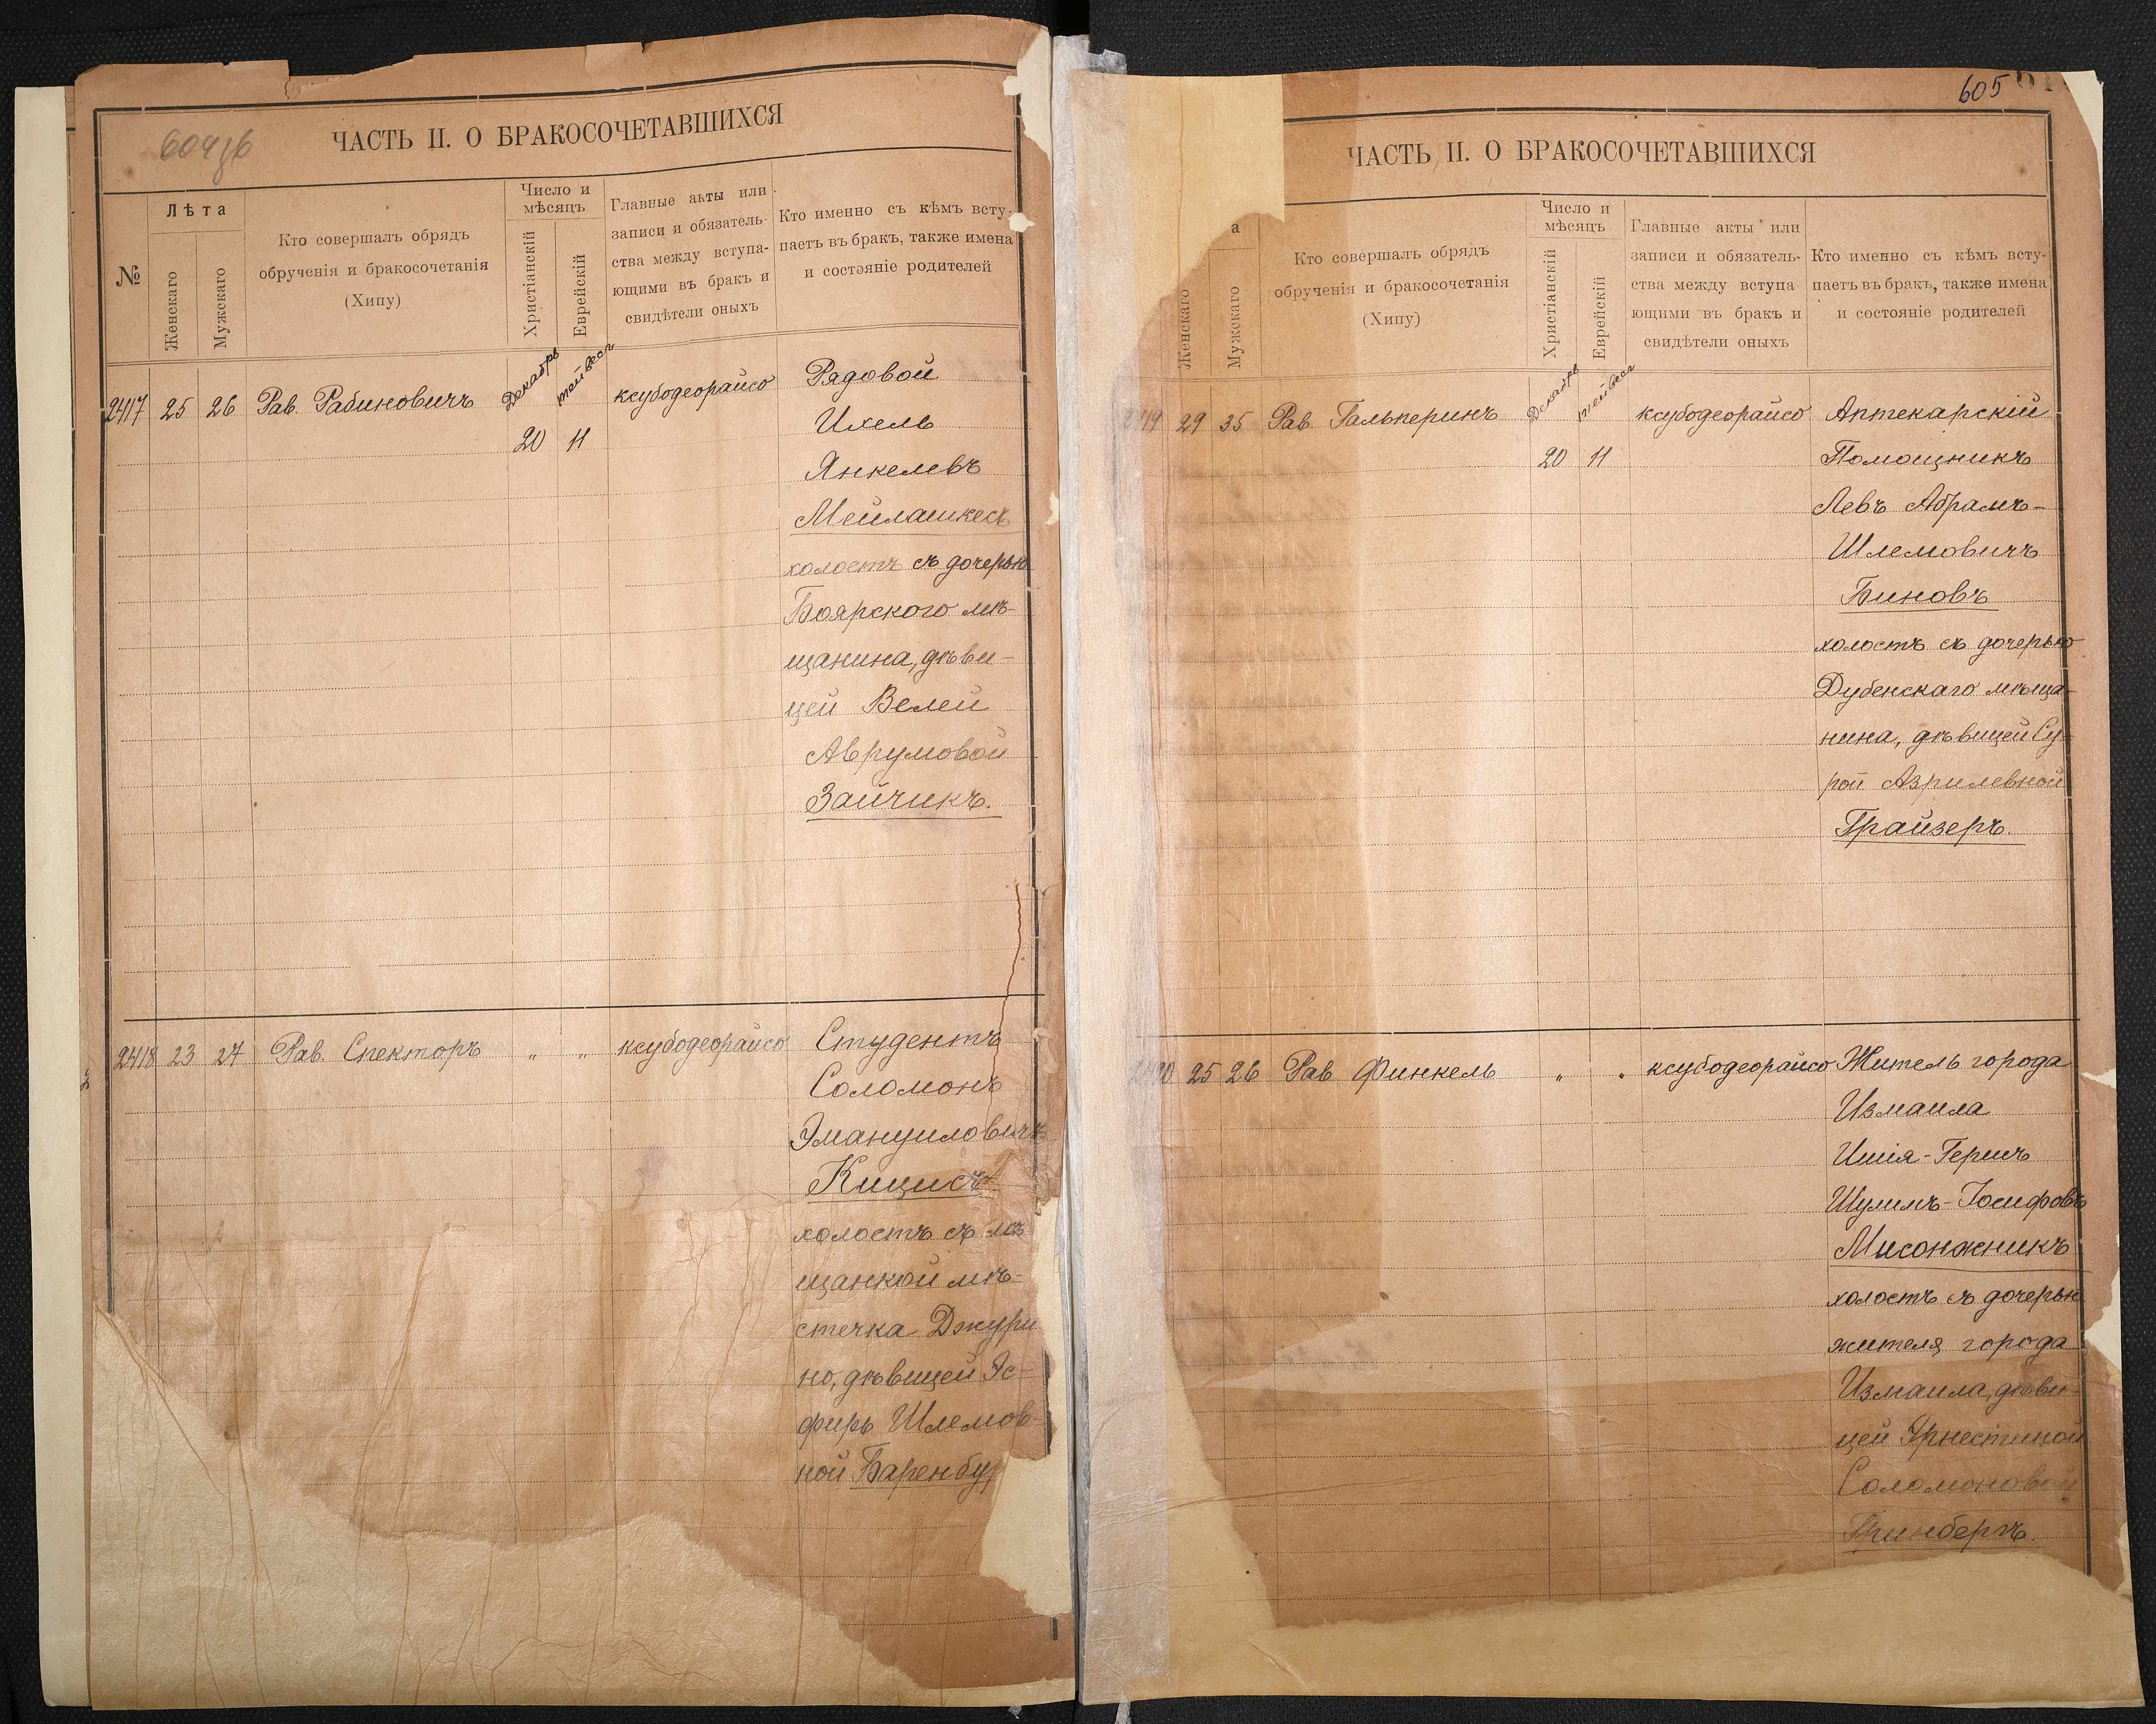 ЧАСТЬ II. О БРАКОСОЧЕТАВШИХСЯ
№
Лѣта
Женскаго
Мужскаго
Кто совершалъ обрядъ
обрученія и бракосочетанія
(Хипу)
Число и
мѣсяцъ
Христіанскій
Еврейскій
Главные акты или
записи и обязатель-
ства между вступа-
ющими въ бракъ и
свидѣтели оныхъ
Кто именно съ кѣмъ всту-
паетъ въ бракъ, также имена
и состояніе родителей
2417 25 26 Рав. Рабиновичъ Декабрь ксубодеорайсо Рядовой
20 11 Ихель
Янкелевъ
Мейлашкесъ
холостъ съ дочерью
Боярского мѣ-
щанина, дѣви-
цей Велей
Аврумовой
Зайчикъ.
2418 23 27 Рав. Спекторъ " " ксубодеорайсо Студентъ
Соломонъ
Эмануиловичъ
Кицисъ
холостъ съ мѣ
щанкой мѣ-
стечка Джури
но, дѣвицей Эс-
фирь Шлемов-
ной Баренбур
605
ЧАСТЬ II. О БРАКОСОЧЕТАВШИХСЯ
а
Женскаго
Мужскаго
Кто совершалъ обрядъ
обрученія и бракосочетанія
(Хипу)
Число и
мѣсяцъ
Христіанскій
Еврейскій
Главные акты или
записи и обязатель-
ства между вступа
ющими въ бракъ и
свидѣтели оныхъ
Кто именно съ кѣмъ всту-
паетъ въ бракъ, также имена
и состояніе родителей
29 35 Рав. Гальперинъ Декабрь ксубодеорайсо Аптекарскій
20 11 Помощникъ
Левъ Абрамъ-
Шлемовичъ
Биновъ
холостъ съ дочерью
Дубенскаго мѣща-
нина, дѣвицей Су-
рой Азрилевной
Грайзеръ.
25 26 Рав Финкель " " ксубодеорайсо Житель города
Измаила
Ишія-Гершъ
Шулимъ-Іосифовъ
Мисонжникъ
холостъ съ дочерью
жителя города
Измаила, дѣви-
цей Эрнестиной
Соломоновой
Гринбергъ.